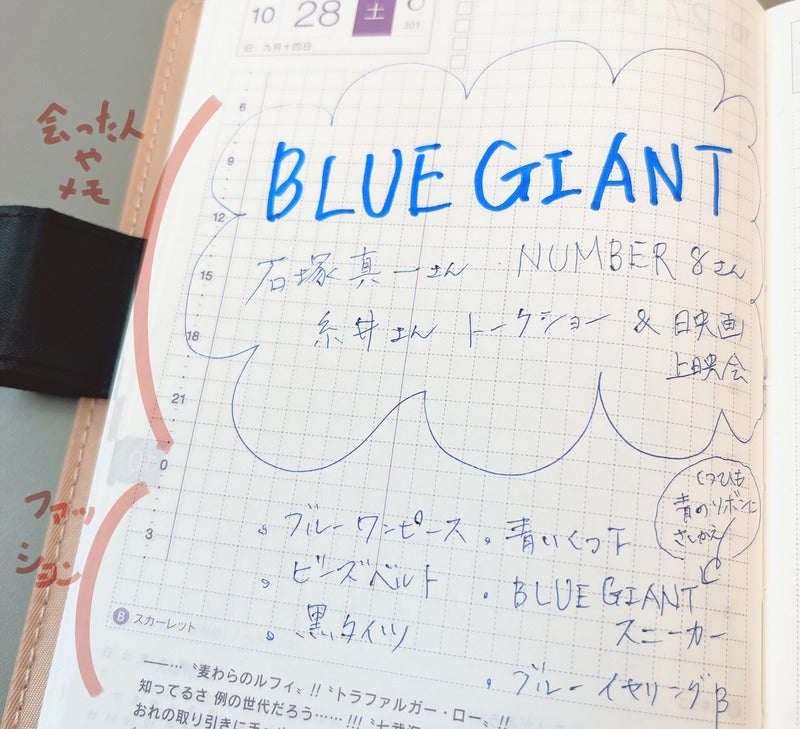 10
28
土
301
旧 九月十四日
会った人
や
メモ
6
9
12
15
18
21
0
3
BLUE GIANT
石塚真一さん NUMBER 8さん
糸井さん トークショー & 映画
上映会
くつひも
青のリボンに
さしかえ
ファッ
ション
。ブルーワンピース
。ビーズベルト
。黒タイツ
・青いくつ下
・BLUE GIANT
スニーカー
・ブルーイヤリング
B スカーレット
――…〝麦わらのルフィ〟!!〝トラファルガー・ロー〟!!
知ってるさ 例の世代だろう……!!!〝七武海
おれの取り引きに